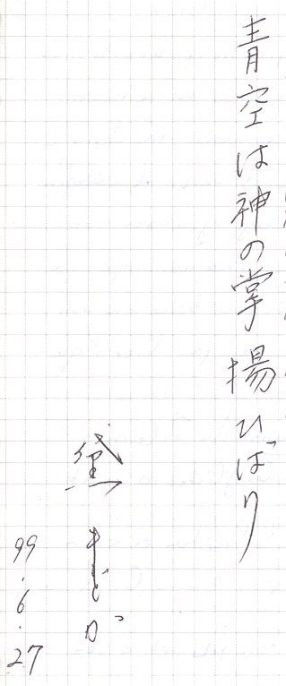 青空は神の掌揚ひばり
黛 まどか
99.6.27